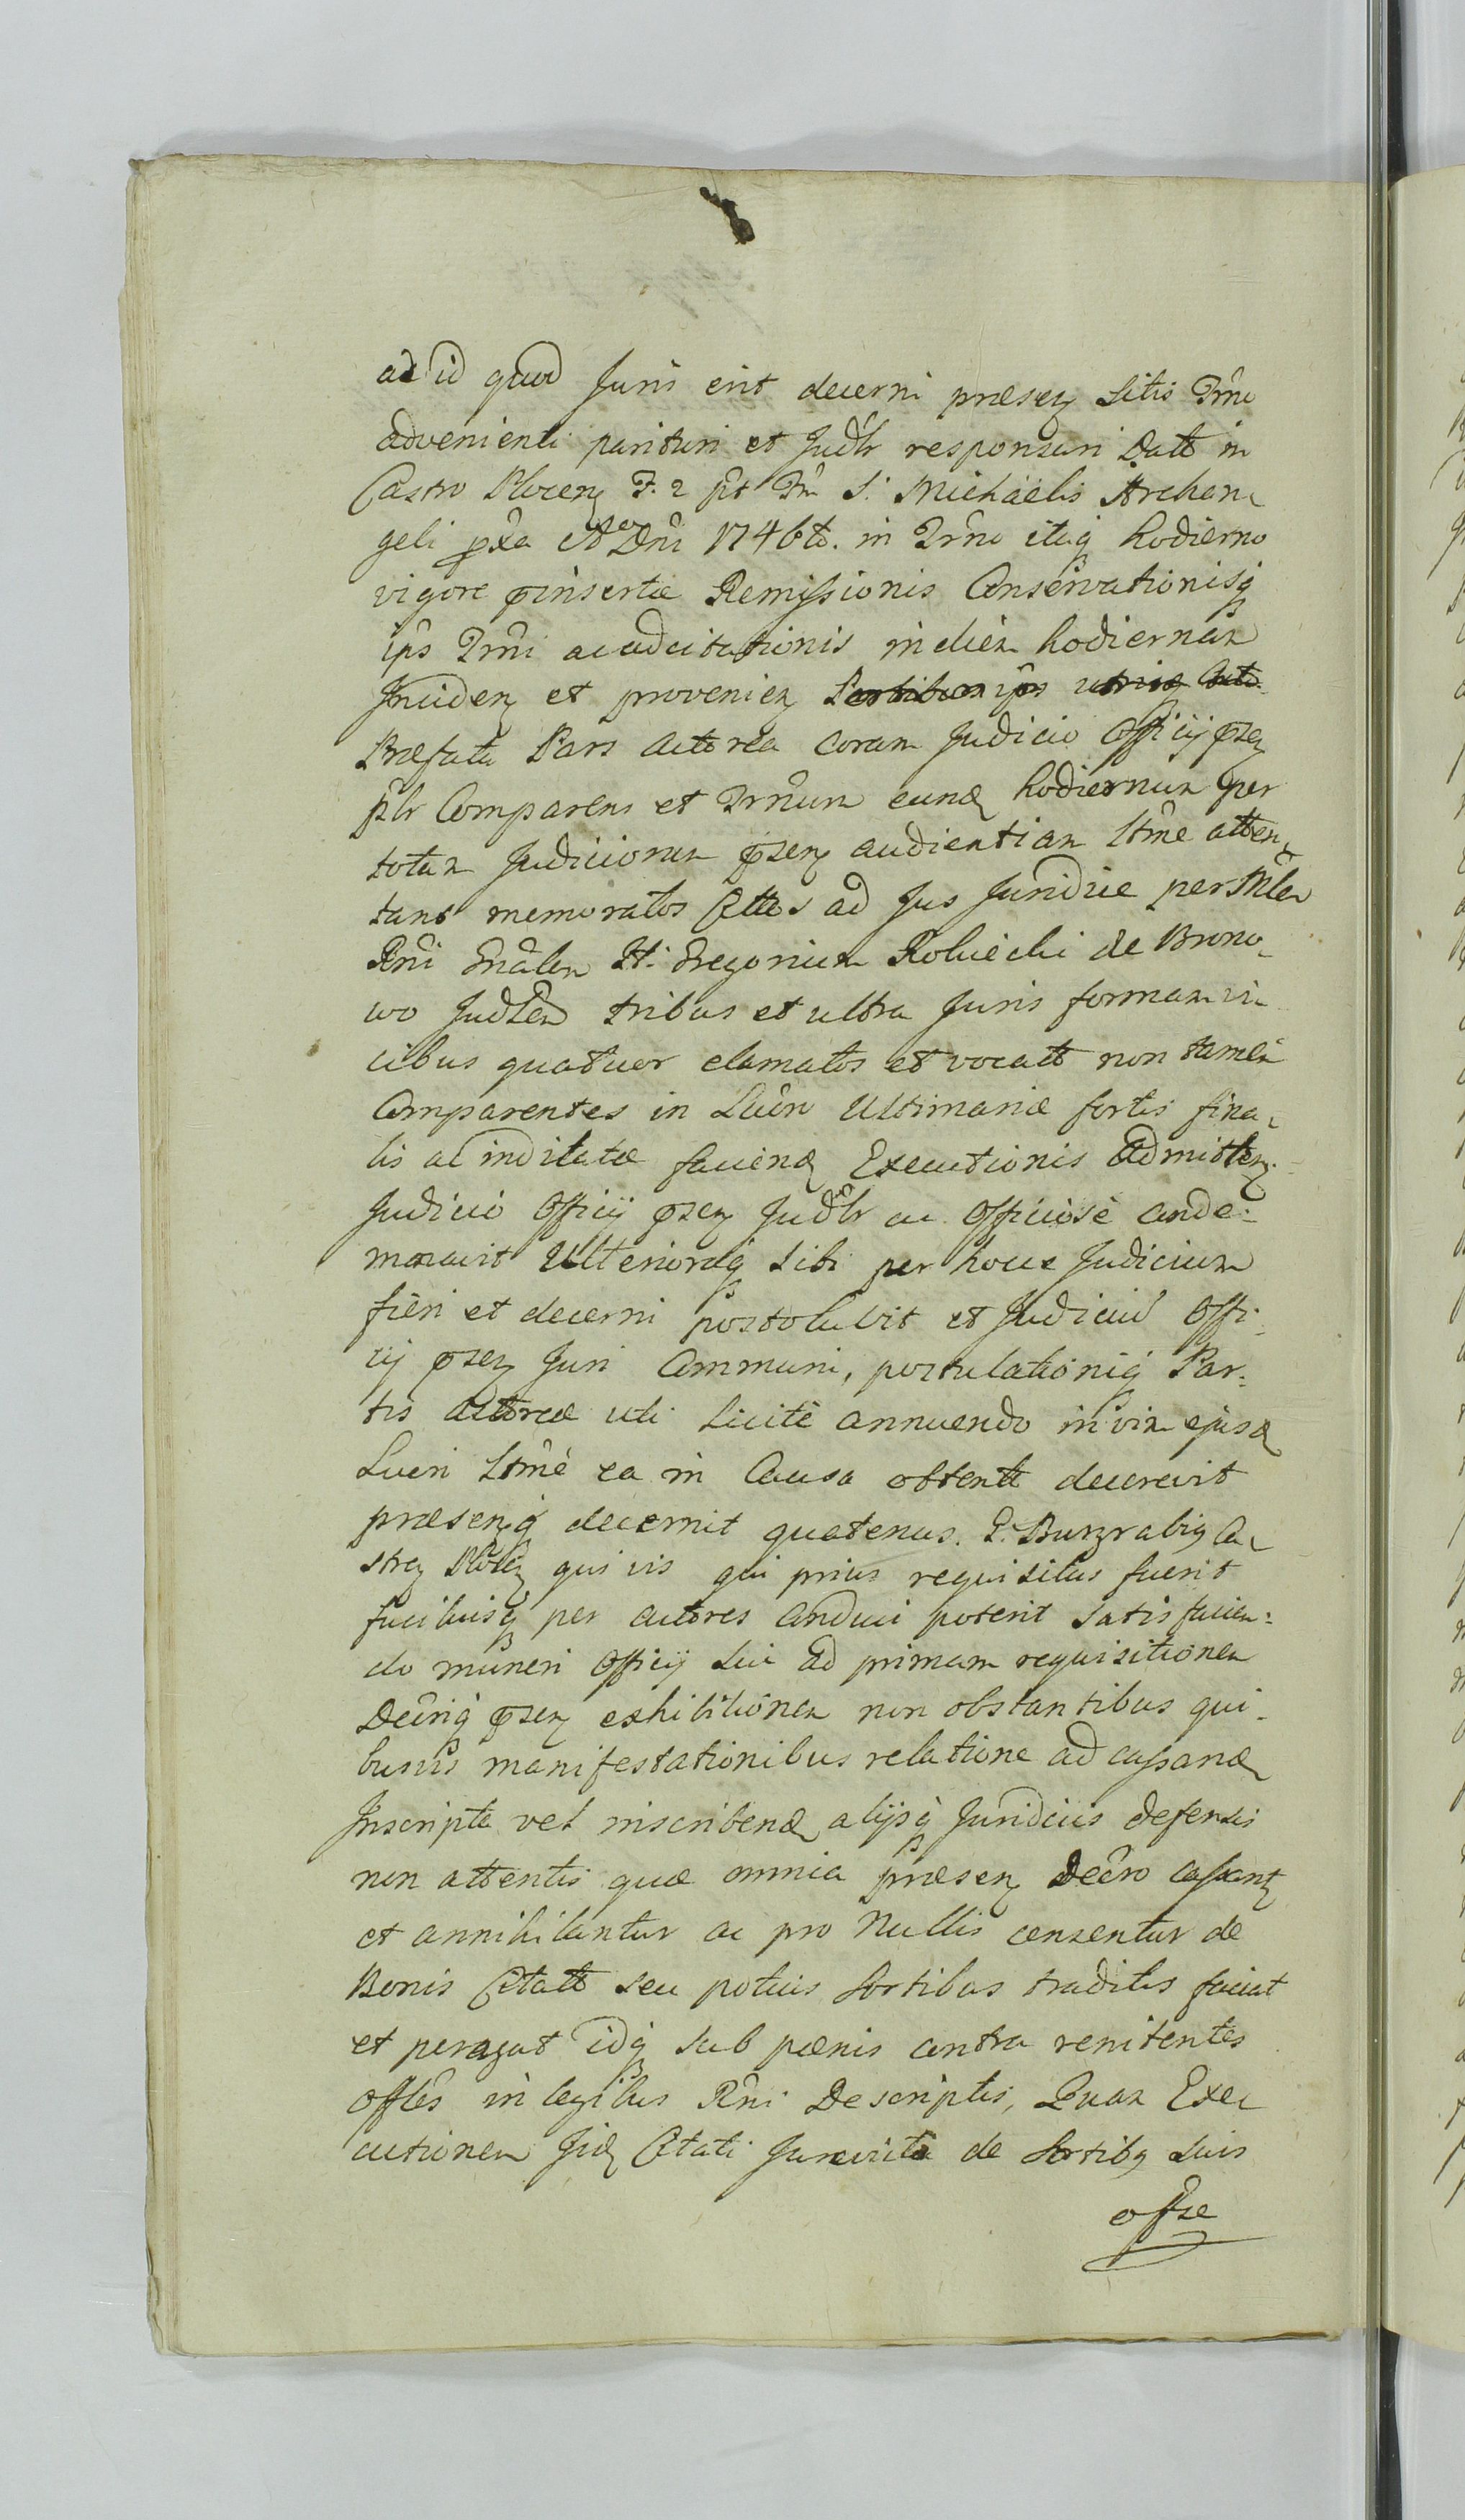 ad id quod Juris erit decerni præsen Litis Trno
advenienti parituri et Judlr responsuri Datt in
Castro Plocen F. 2 pt Fm S. Michaelis Archan
geli pxa Ao Dni 1746to. in Trno itaq hodierno
vigore pinsertæ Remissionis Conservationisq
ips Trni ac adcitationis in diem hodiernam
Inciden et provenien
Præfata Pars actorea coram Judicio Officij psen
plr Comparens et Trnum eund hodiernum per
totam Judiciorum psen audientiam ltme atten
tans memoratos Cttos ad Jus Juridice per Mlem
Rni Gnalem H. Gregorium Rokicki de Brono
wo Judlem tribus et ultra Juris formam vi
cibus quatuor clamatos et vocatt non tamen
Comparentes in Lucro Ultimariæ fortis fina
lis al inditatæ faciend Executionis admitten
Judicio Officij psen Judlr ac Officiose conde
mnavit Ulteriorq sibi per hocce Judicium
fieri et decerni postolavit et Judiciu Offi
cij psen Juri Communi, postulationiq Par
tis actoreæ uti licite annuendo in vim ejusd
Lucri ltme ea in Causa obtentt decrevit
præsenq decernit quatenus. G. Burgrabig Ca
stren Plocen quivis qui prius requisitus fuerit
faciliusq per actores conduci poterit satisfacien
do muneri Officij sui ad primam requisitionem
Decriq psen exhibitionem non obstantibus qui
busvis manifestationibus relatione ad cassand
Inscriptt vel inscribend alijsq Juridicis defensis
non attentis quæ omnia præsen Decro cassant
et annihilantur ac pro Nullis censentur de
Bonis Citatt seu potius Sortibus traditis faciat
et peragat idq sub pænis contra renitentes
Offles in legibus Rni Descriptis, Quam Exe
cutionem Jid Citati Juncvicta de Sortibq suis
offse